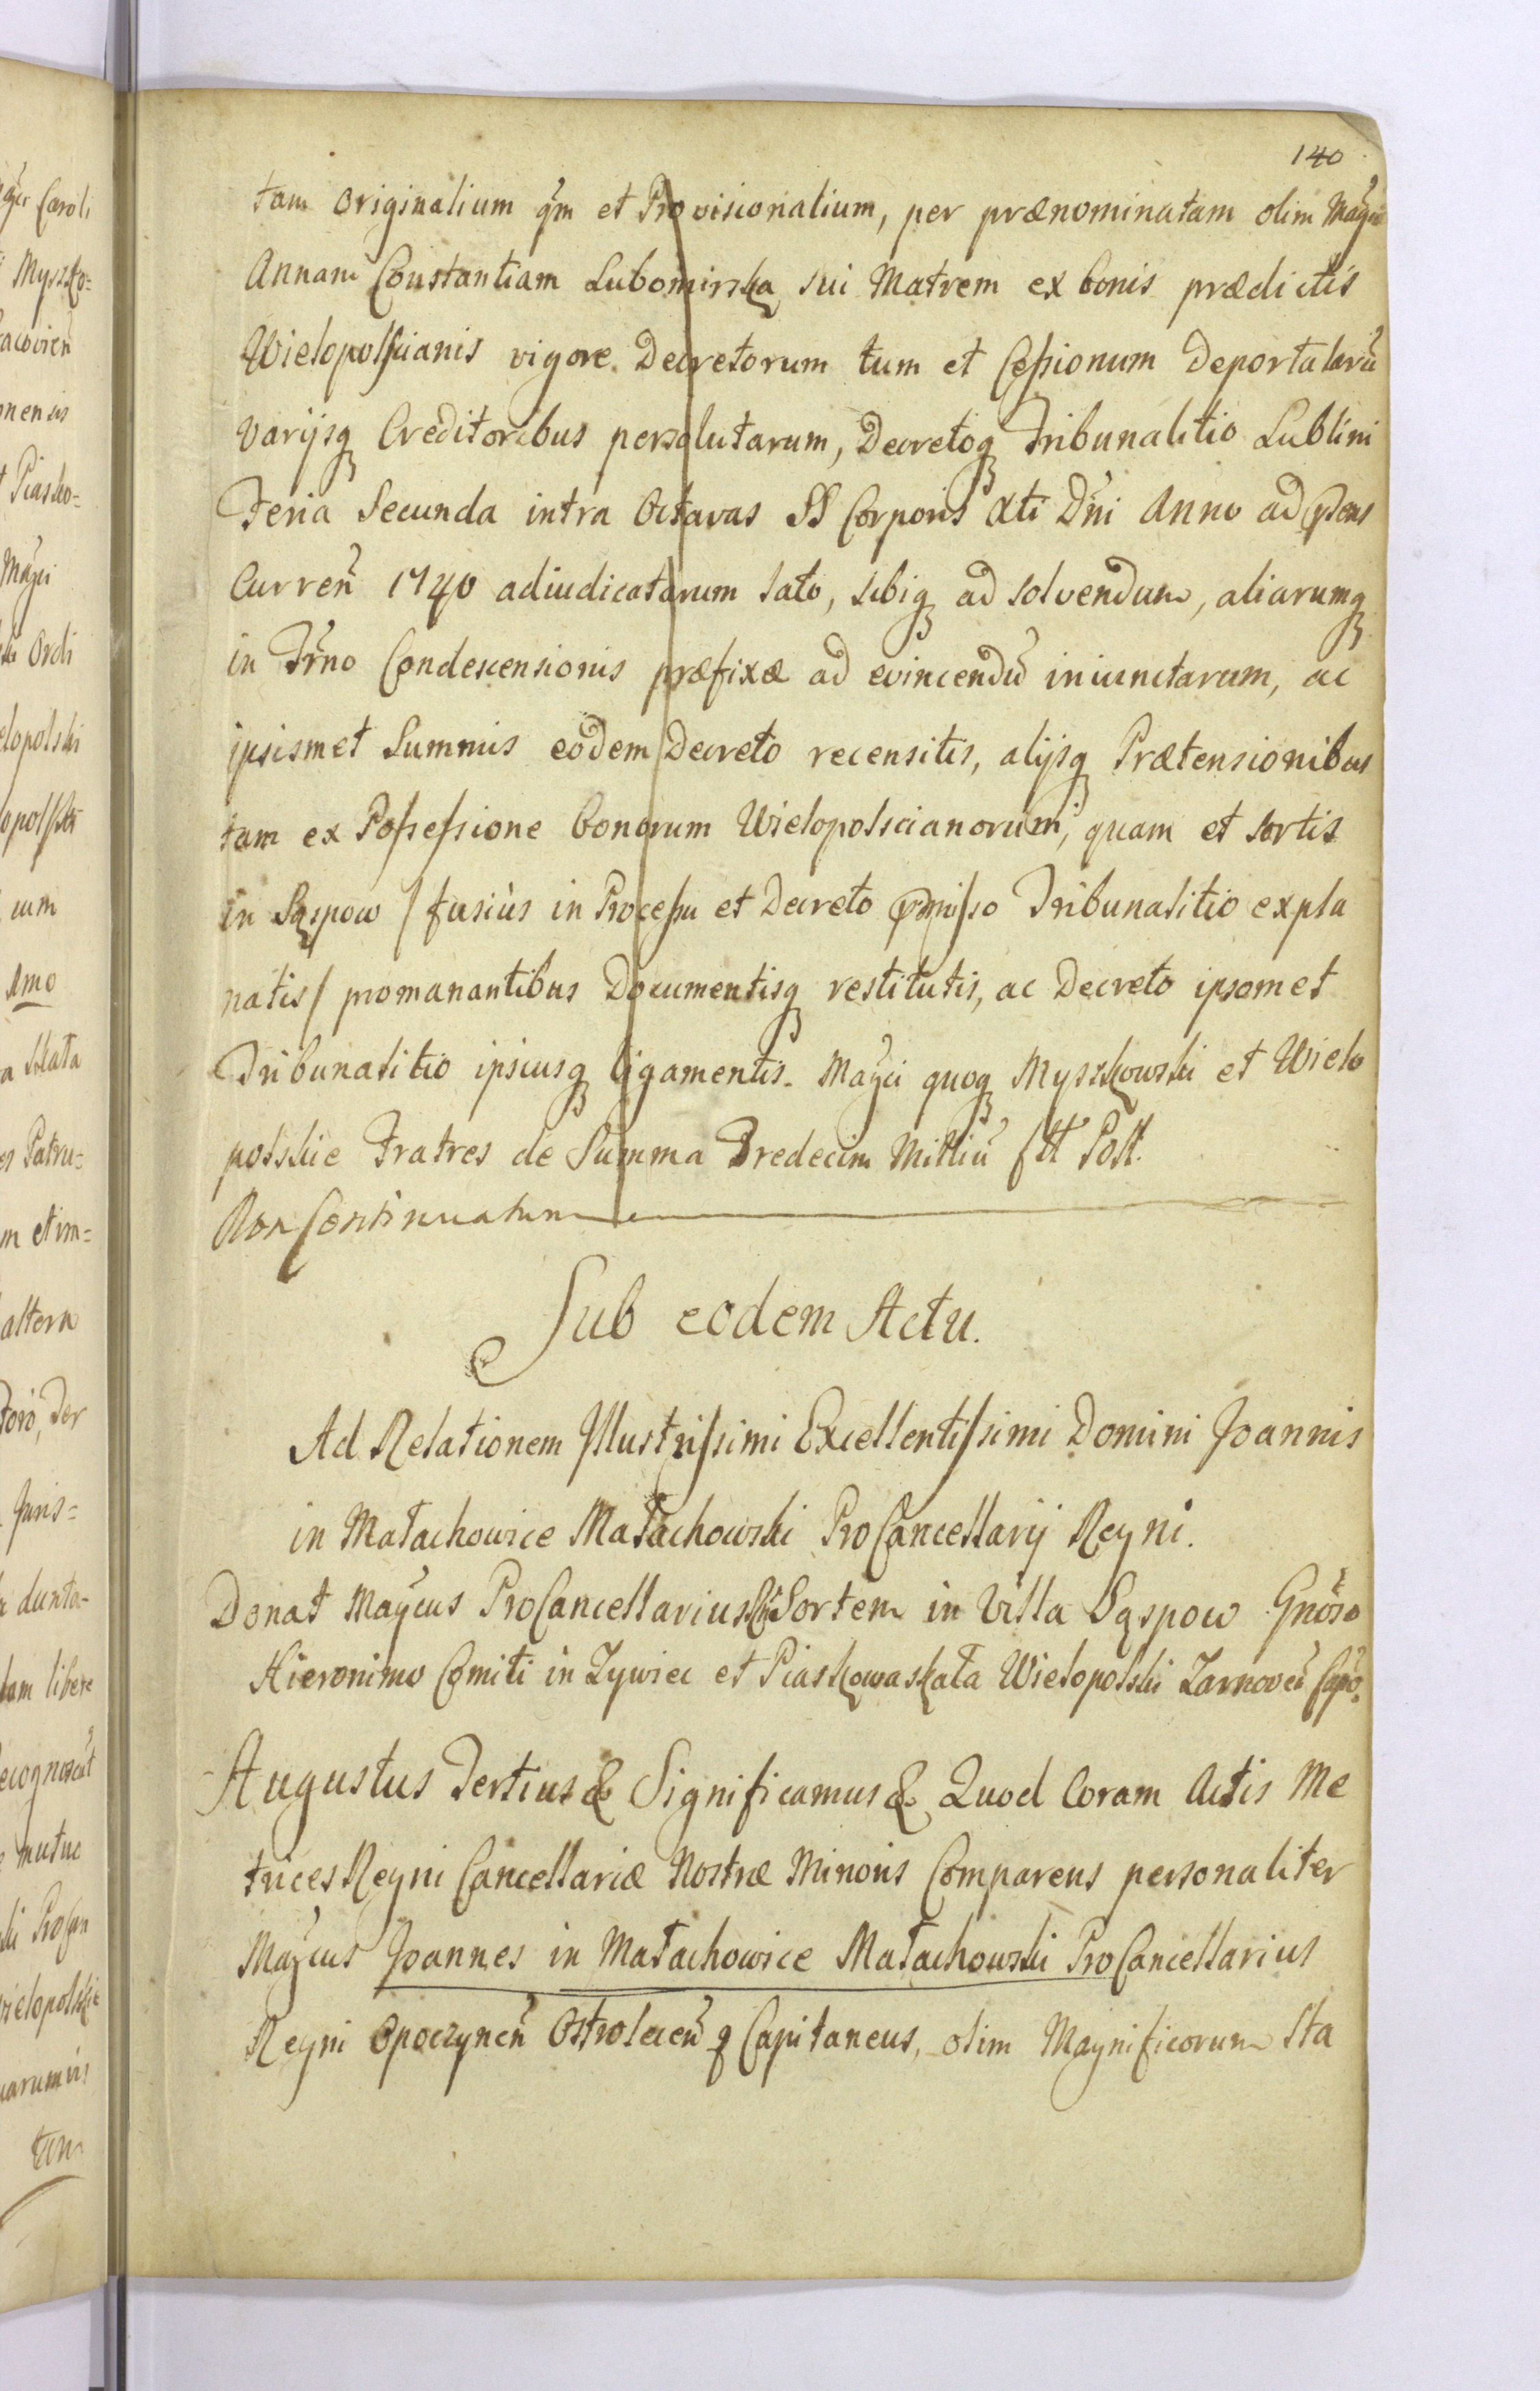 140
tam Originalium qm̃ et Provisionalium, per prænominatam olim Magñ
Annam Constantiam Lubomirska sui Matrem ex bonis prædictis
Wielopolscianis vigore Decretorum tum et Cessionum Deportatarũ
varijsq Creditoribus persolutarum, Decretoq Tribunalitio Lublini
Feria Secunda intra Octavas SS Corporis Xti Dñi Anno ad præns
Curreñ 1740 adiudicatarum lato, sibiq ad solvendum, aliarumq
in Trño Condescensionis præfixæ ad evincendũ iniunctarum, ac
ipsismet Summis eodem Decreto recensitis, alijsq Prætensionibus
tam ex Possessione bonorum Wielopolscianorum, quam et sortis
in Sąspow / fusius in Processu et Decreto præmisso Tribunalitio expla
natis / promanantibus Documentisq restitutis, ac Decreto ipsomet
Tribunalitio ipsiusq ligamentis. Magci quoq Myszkowski et Wielo
polskie Fratres de Summa Tredecim Milliũ ftt Poll.
Non Continuatum
Sub eodem Actu.
Ad Relationem Illustrissimi Excellentissimi Domini Joannis
in Małachowice Małachowski ProCancellarij Regni.
Donat Magcus ProCancellarius Rñi Sortem in Villa Sąspow Gñoso
Hieronimo Comiti in Zywiec et Piaskowaskała Wielopolski Zarnoveñ Cap̃o.
Augustus Tertius & Significamus & Quod Coram Actis Me
trices Regni Cancellariæ Nostræ Minoris Comparens personaliter
Magcus Joannes in Małachowice Małachowski ProCancellarius
Regni Opoczyneñ Ostroleceñ q Capitaneus, olim Magnificorum Sta